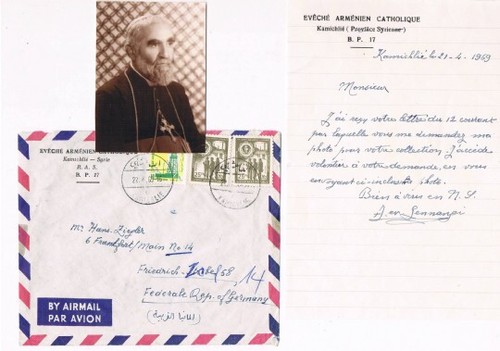 EVÊCHÉ ARMÉNIEN CATHOLIQUE
Kamichlié ( Province Syrienne )
B. P. 17
Kamichlié le 21-4-1969
Monsieur
J'ai reçu votre lettre du 12 courant
par laquelle vous me demandez ma
photo pour votre collection. J'accède
volontier à votre demande, en vous
envoyant ci-incluse photo.
Bien à vous en N. S.
EVÊCHÉ ARMÉNIEN CATHOLIQUE
Kamichlié — Syrie
R. A. S.
B. P. 17
Mr Hans Ziegler
6 Frankfurt/Main No 14
Friedrich- 58, 14
Federale Rep. of Germany
BY AIRMAIL
PAR AVION